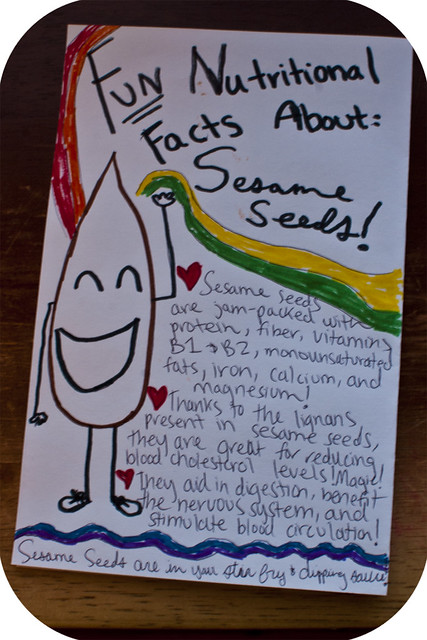 Fun Nutritional
Facts About:
Sesame
Seeds!
Sesame seeds
are jam-packed with
protein, fiber, vitamins
B1 & B2, monounsaturated
fats, iron, calcium, and
magnesium!
Thanks to the lignans,
present in sesame seeds,
they are great for reducing
blood cholesterol levels! Magic!
They aid in digestion, benefit
the nervous system, and
stimulate blood circulation!
Sesame Seeds are in your stir fry & dipping sauce!